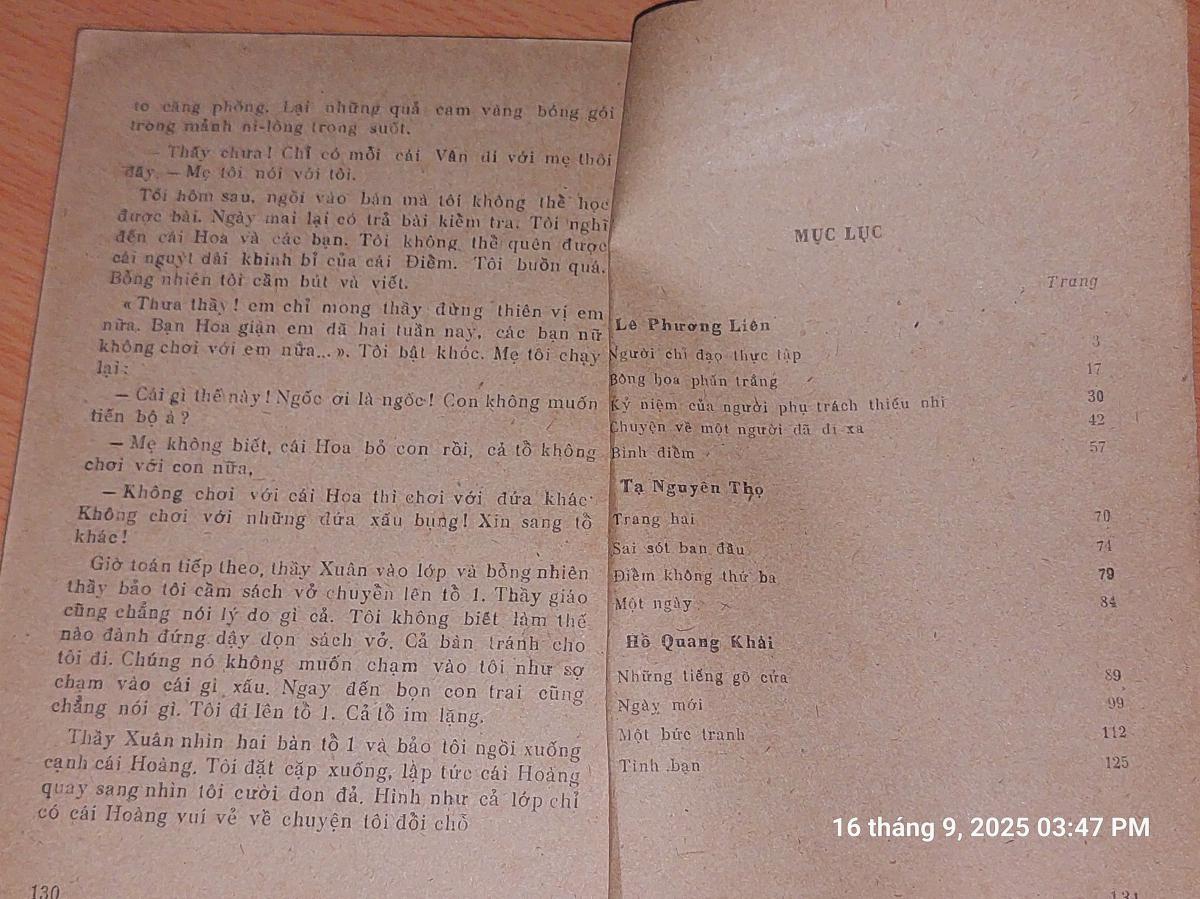 to căng phồng. Lại những quả cam vàng bóng gói
trong mảnh ni-lông trong suốt.
— Thấy chưa! Chỉ có mỗi cái Vân đi với mẹ thôi
đấy. — Mẹ tôi nói với tôi.
Tối hôm sau, ngồi vào bàn mà tôi không thể học
được bài. Ngày mai lại có trả bài kiểm tra. Tôi nghĩ
đến cái Hoa và các bạn. Tôi không thể quên được
cái nguýt dài khinh bỉ của cái Điềm. Tôi buồn quá.
Bỗng nhiên tôi cầm bút và viết.
«Thưa thầy! em chỉ mong thầy đừng thiên vị em
nữa. Bạn Hoa giận em đã hai tuần nay, các bạn nữ
không chơi với em nữa...». Tôi bật khóc. Mẹ tôi chạy
lại:
— Cái gì thế này! Ngốc ơi là ngốc! Con không muốn
tiến bộ à?
— Mẹ không biết, cái Hoa bỏ con rồi, cả tổ không
chơi với con nữa,
— Không chơi với cái Hoa thì chơi với đứa khác.
Không chơi với những đứa xấu bụng! Xin sang tổ
khác!
Giờ toán tiếp theo, thầy Xuân vào lớp và bỗng nhiên
thầy bảo tôi cầm sách vở chuyển lên tổ 1. Thầy giáo
cũng chẳng nói lý do gì cả. Tôi không biết làm thế
nào đành đứng dậy dọn sách vở. Cả bàn tránh cho
tôi đi. Chúng nó không muốn chạm vào tôi như sợ
chạm vào cái gì xấu. Ngay đến bọn con trai cũng
chẳng nói gì. Tôi đi lên tổ 1. Cả tổ im lặng.
Thầy Xuân nhìn hai bàn tổ 1 và bảo tôi ngồi xuống
cạnh cái Hoàng. Tôi đặt cặp xuống, lập tức cái Hoàng
quay sang nhìn tôi cười đon đả. Hình như cả lớp chỉ
có cái Hoàng vui vẻ về chuyện tôi đổi chỗ
130
MỤC LỤC
Trang
Lê Phương Liên
Người chỉ đạo thực tập 3
Bông hoa phấn trắng 17
Kỷ niệm của người phụ trách thiếu nhi 30
Chuyện về một người đã đi xa 42
Bình điểm 57
Tạ Nguyên Thọ
Trang hai 70
Sai sót ban đầu 74
Điểm không thứ ba 79
Một ngày 84
Hồ Quang Khải
Những tiếng gõ cửa 89
Ngày mới 99
Một bức tranh 112
Tình bạn 125
131
16 tháng 9, 2025 03:47 PM